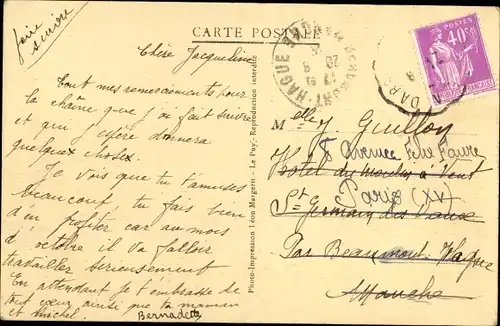 faire
suivre
CARTE POSTALE
Chère Jacqueline
Tout mes remerciements pour
la chaîne que j'ai fait suivre
et qui j'espère donnera
quelques choses.
Je vois que tu t'amuses
beaucoup, tu fais bien
d'en profiter car au mois
d'octobre il va falloir
travailler sérieusement
En attendant je t'embrasse de
tout cœur ainsi que ta maman
et michel.
Bernadette
Photo-Impression Léon Margerit - Le Puy - Reproduction interdite
BEAUMONT-HAGUE
POSTES
40c
RÉPUBLIQUE FRANÇAISE
Melle J. Guillon
8 Avenue Félix Faure
Hôtel du Moulin à Vent
Paris (XV)
St Germain des Vaux
Par Beaumont-Hague
Manche